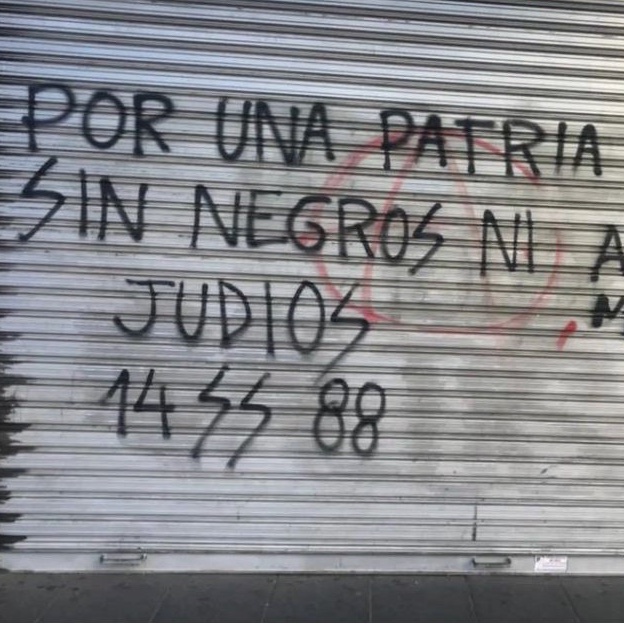 POR UNA PATRIA
SIN NEGROS NI
JUDIOS
14 SS 88